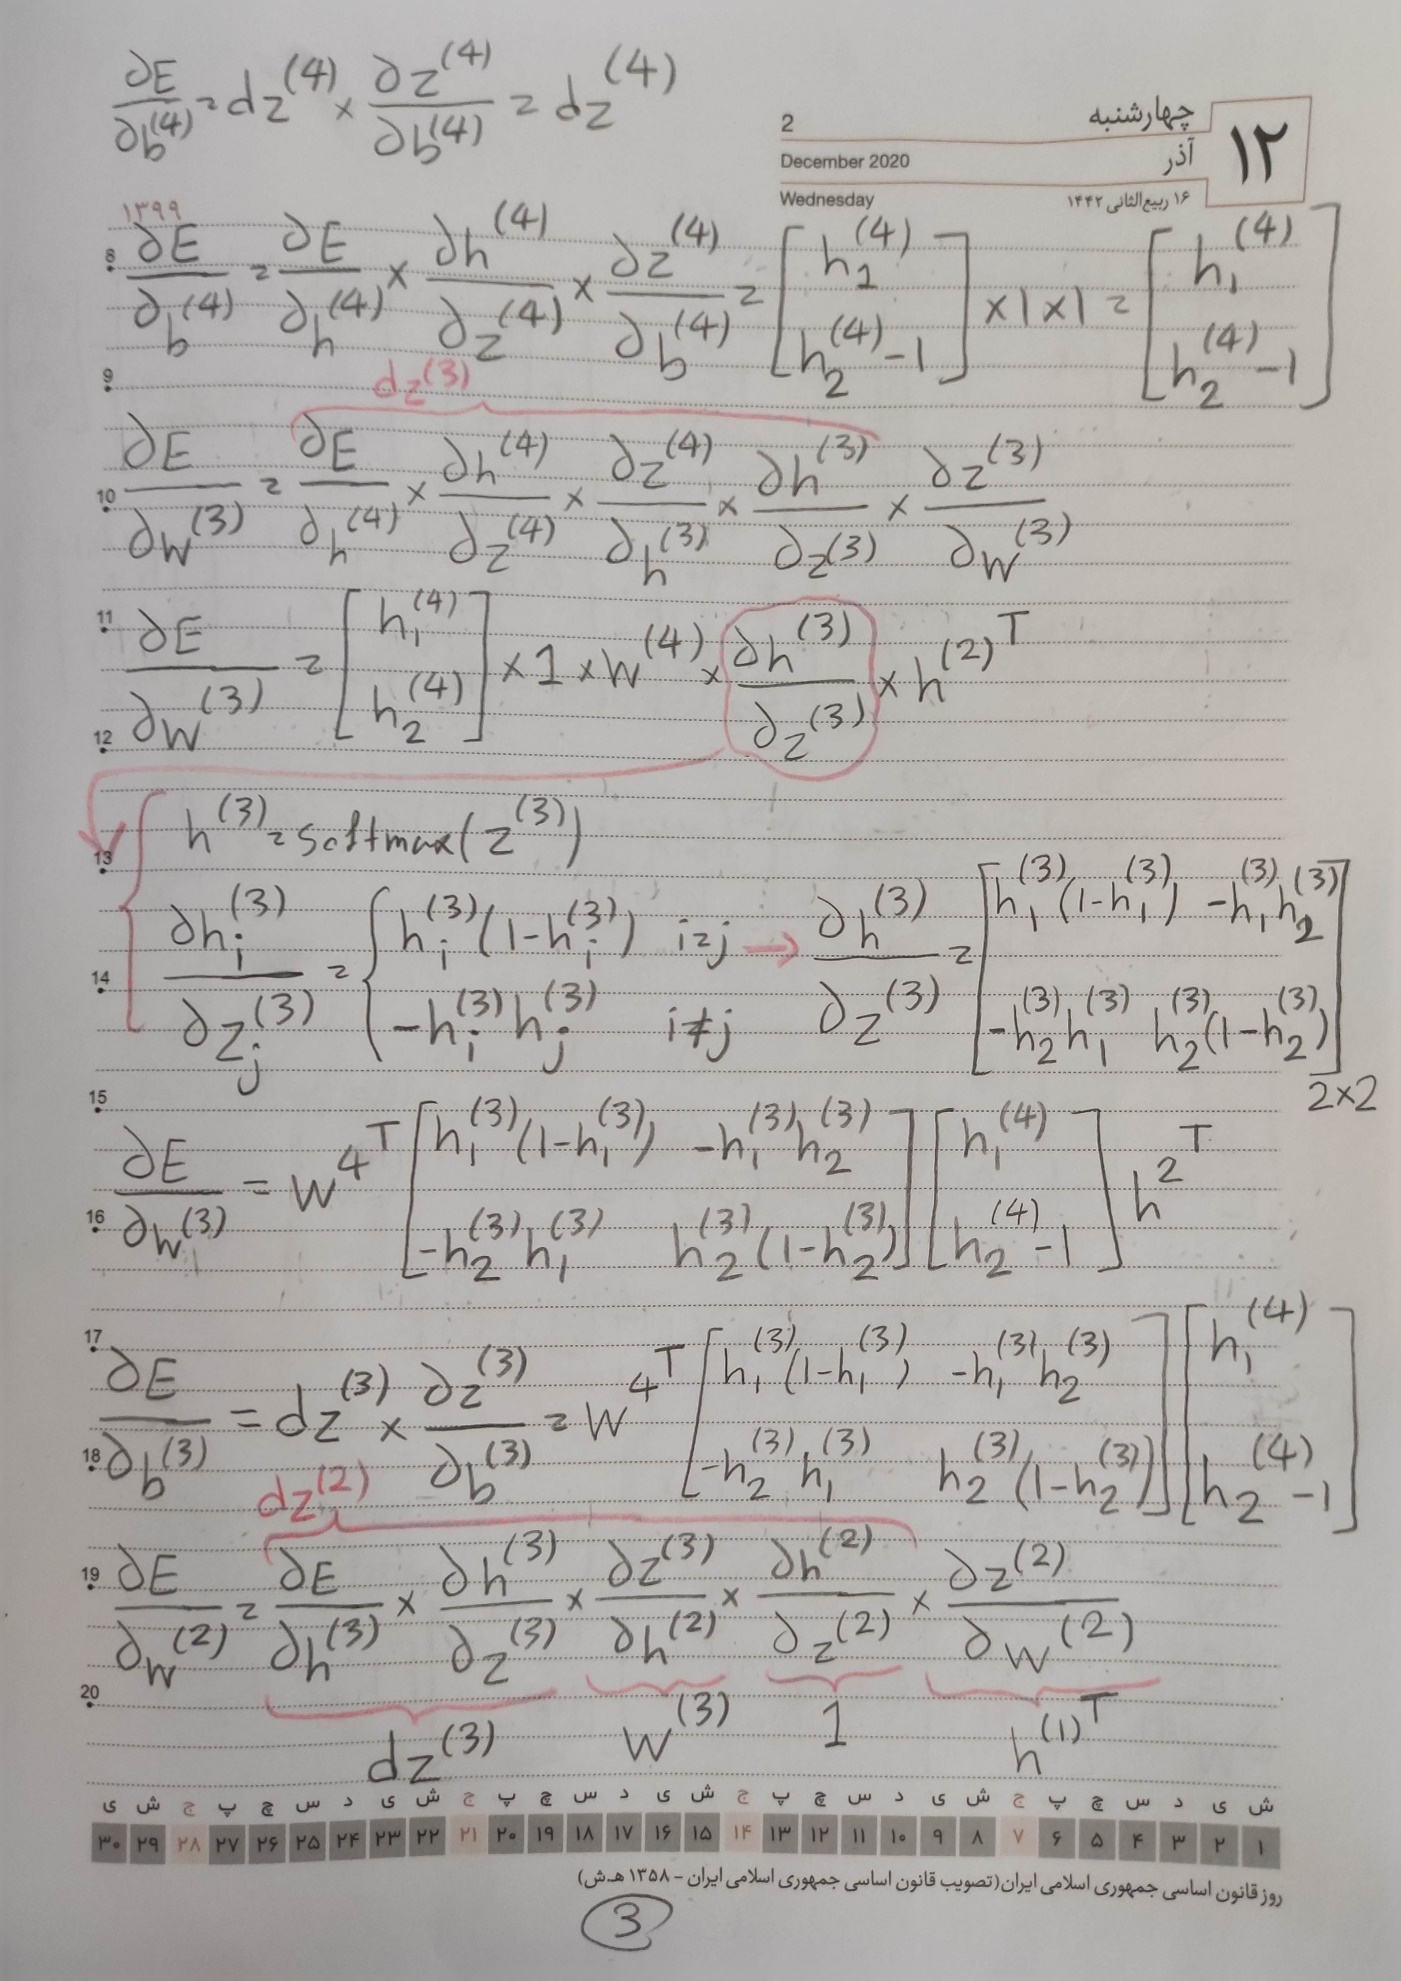 ∂E/∂b^(4) = dz^(4) × ∂z^(4)/∂b^(4) = dz^(4)
چهارشنبه
۱۲
آذر
۱۶ ربیع‌الثانی ۱۴۴۲
2
December 2020
Wednesday
۱۳۹۹
8 ∂E/∂b^(4) = ∂E/∂h^(4) × ∂h^(4)/∂z^(4) × ∂z^(4)/∂b^(4) = [h_1^(4) ; h_2^(4) -1] ×1×1 = [h_1^(4) ; h_2^(4) -1]
9
dz^(3)
10 ∂E/∂w^(3) = ∂E/∂h^(4) × ∂h^(4)/∂z^(4) × ∂z^(4)/∂h^(3) × ∂h^(3)/∂z^(3) × ∂z^(3)/∂w^(3)
11 ∂E/∂w^(3) = [h_1^(4) ; h_2^(4)] × 1 × w^(4) × ∂h^(3)/∂z^(3) × h^(2)T
12
13 h^(3) = softmax(z^(3))
14 ∂h_i^(3)/∂z_j^(3) = { h_i^(3)(1-h_i^(3)) i=j ; -h_i^(3) h_j^(3) i≠j → ∂h^(3)/∂z^(3) = [h_1^(3)(1-h_1^(3)) -h_1^(3)h_2^(3) ; -h_2^(3)h_1^(3) h_2^(3)(1-h_2^(3))] 2×2
15
16 ∂E/∂w^(3) = w^4T [h_1^(3)(1-h_1^(3)) -h_1^(3)h_2^(3) ; -h_2^(3)h_1^(3) h_2^(3)(1-h_2^(3))] [h_1^(4) ; h_2^(4) -1] h^2T
17
18 ∂E/∂b^(3) = dz^(3) × ∂z^(3)/∂b^(3) = w^4T [h_1^(3)(1-h_1^(3)) -h_1^(3)h_2^(3) ; -h_2^(3)h_1^(3) h_2^(3)(1-h_2^(3))] [h_1^(4) ; h_2^(4) -1]
dz^(2)
19 ∂E/∂w^(2) = ∂E/∂h^(3) × ∂h^(3)/∂z^(3) × ∂z^(3)/∂h^(2) × ∂h^(2)/∂z^(2) × ∂z^(2)/∂w^(2)
20
dz^(3) w^(3) 1 h^(1)T
ش ی د س چ پ ج ش ی د س چ پ ج ش ی د س چ پ ج ش ی د س چ پ ج ش ی
۱ ۲ ۳ ۴ ۵ ۶ ۷ ۸ ۹ ۱۰ ۱۱ ۱۲ ۱۳ ۱۴ ۱۵ ۱۶ ۱۷ ۱۸ ۱۹ ۲۰ ۲۱ ۲۲ ۲۳ ۲۴ ۲۵ ۲۶ ۲۷ ۲۸ ۲۹ ۳۰
روز قانون اساسی جمهوری اسلامی ایران (تصویب قانون اساسی جمهوری اسلامی ایران - ۱۳۵۸ هـ.ش)
3